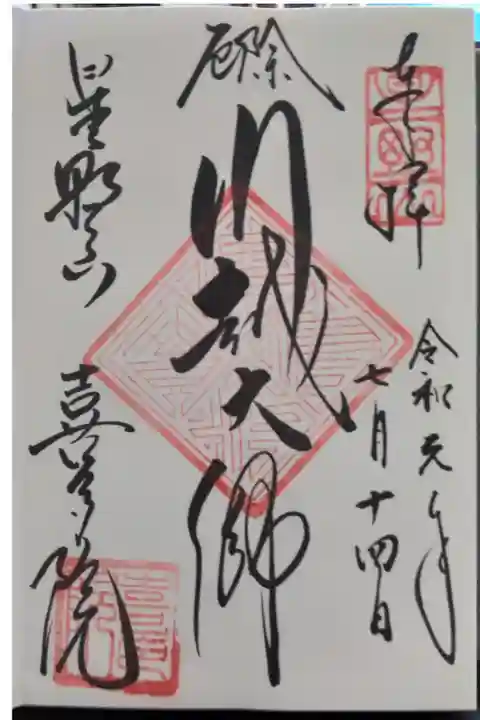 奉拝
令和元年
七月十四日
厄除
川越大師
星野山
喜多院